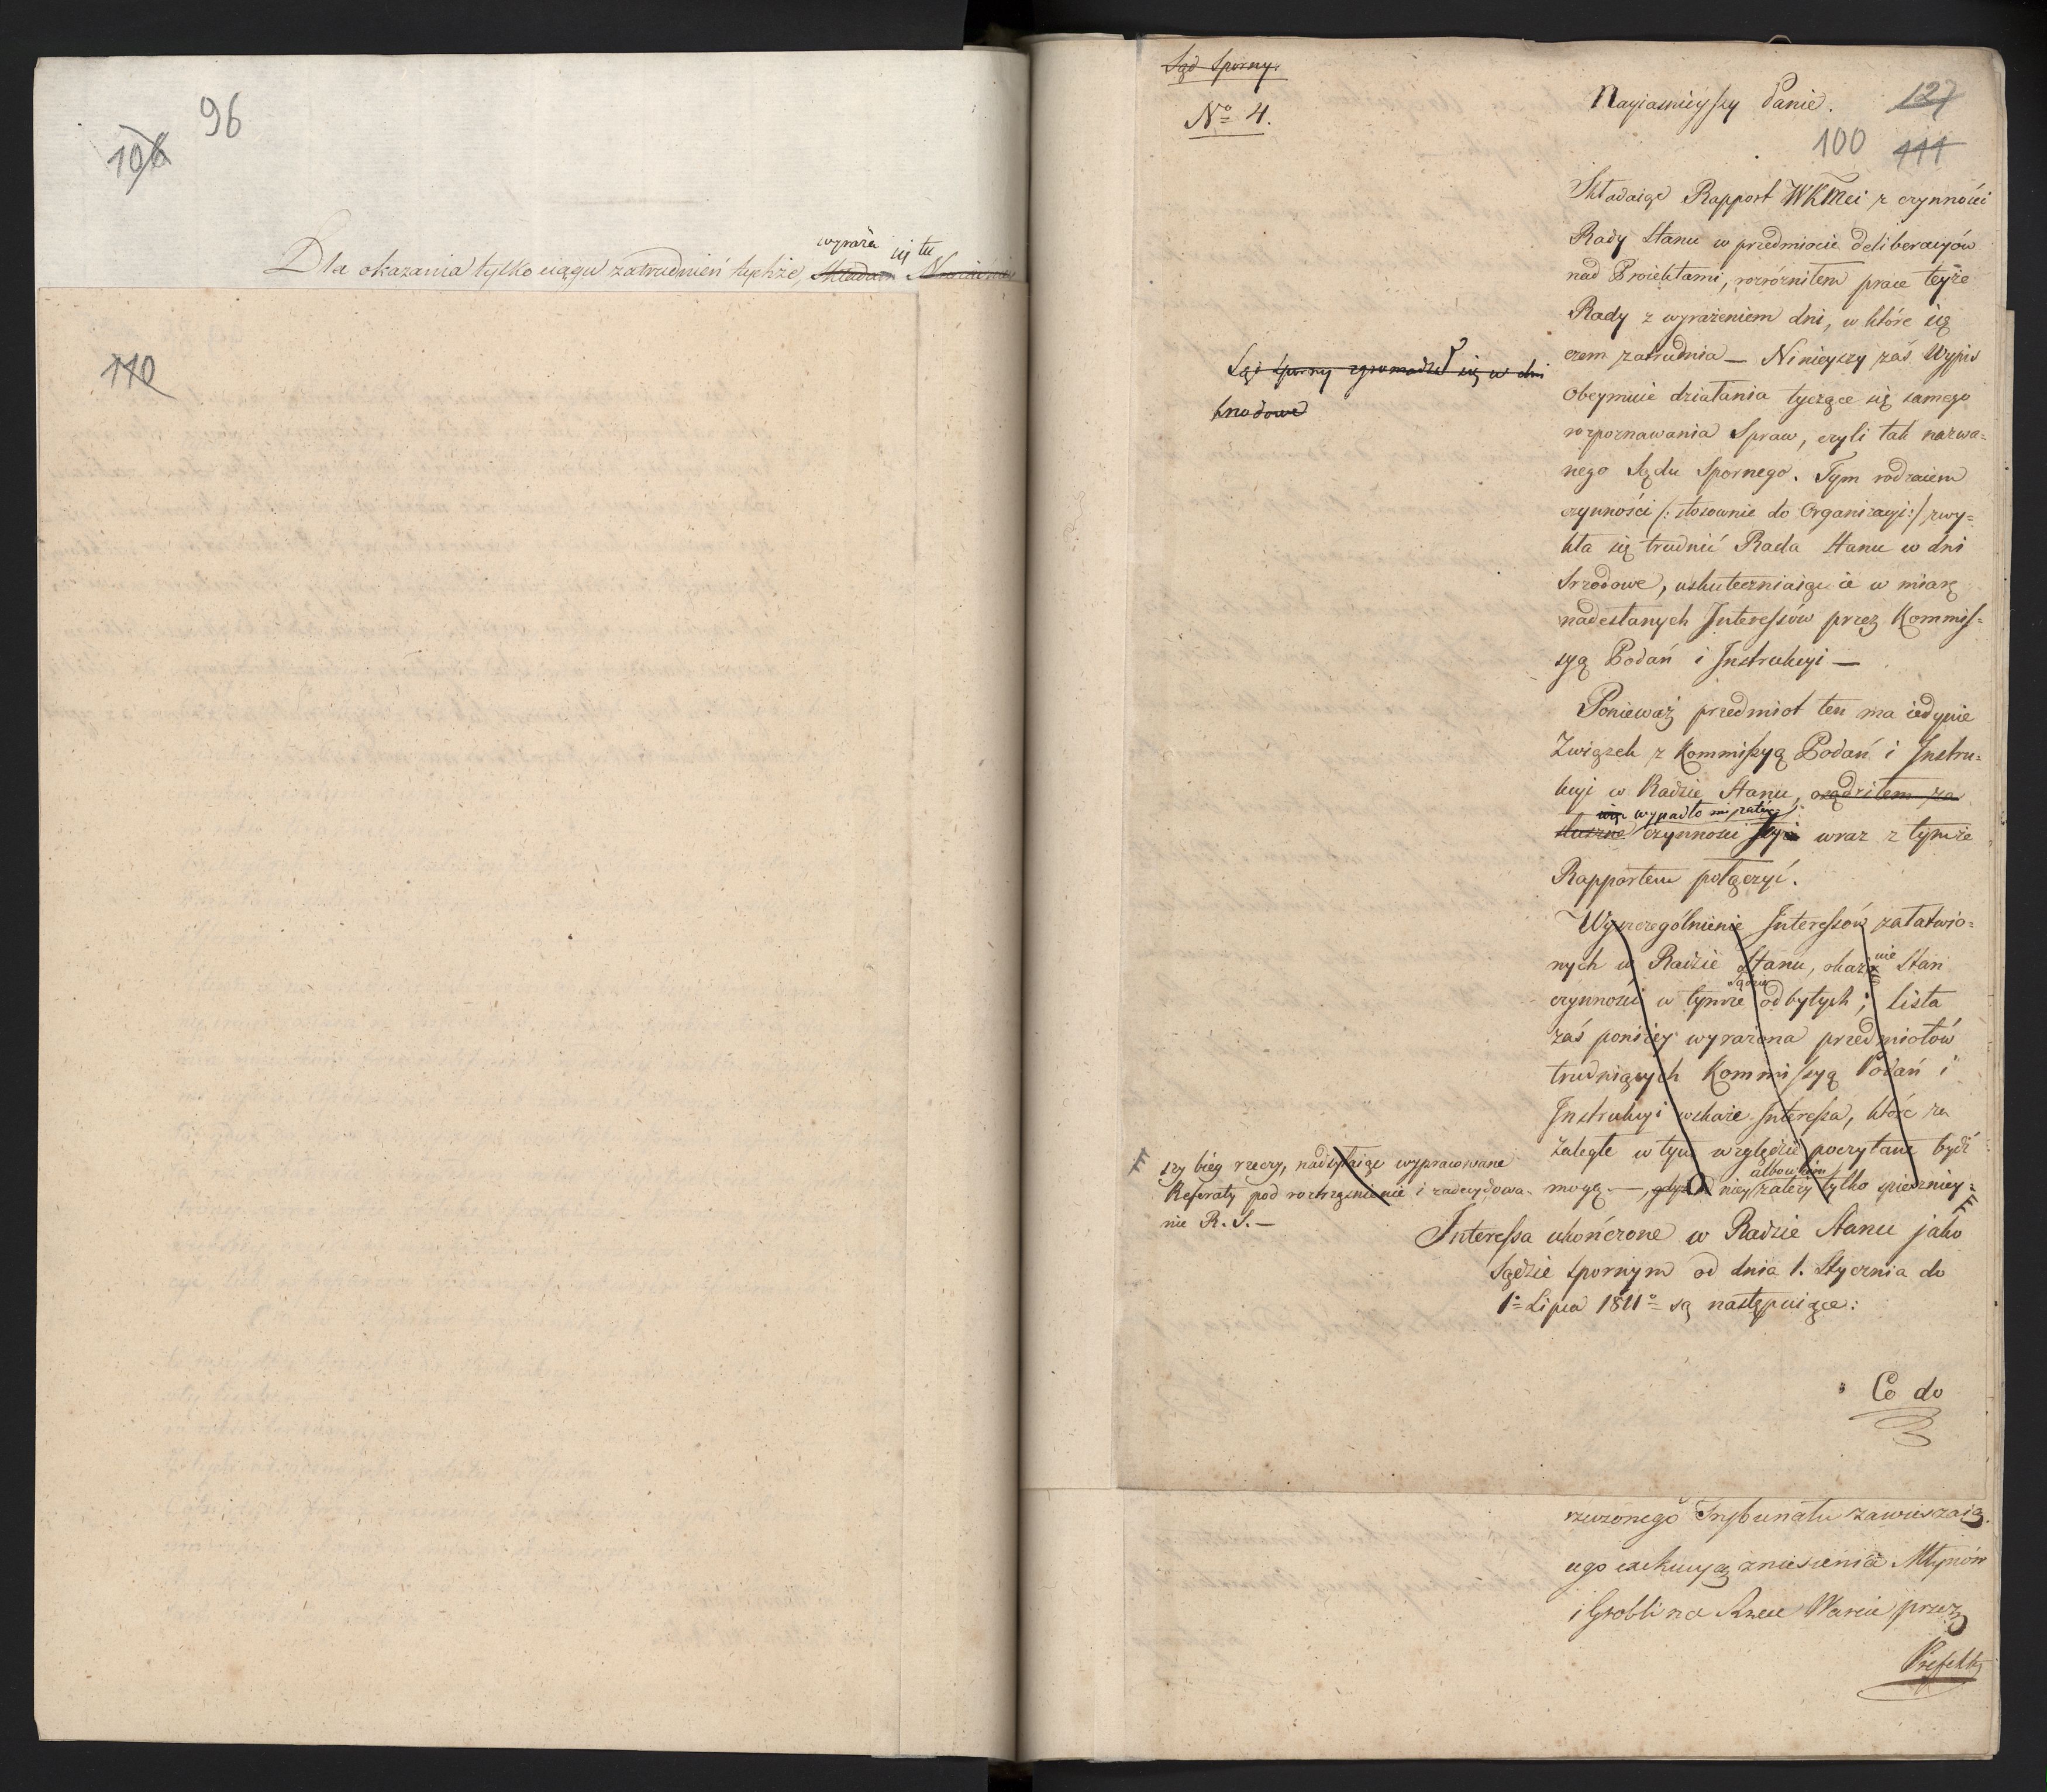 96
106
wyraża się tu
Dla okazania tylko ciągu zatrudnień tychże, składam
110
Sąd Sporny.
No 4.
Nayiaśnieyszy Panie.
127
100
111
Składaiąc Rapport WKMci z czynności
Rady Stanu w przedmiocie deliberacyów
nad Proiektami, rozróżniłem prace teyże
Rady z wyrażeniem dni, w które się
czem zatrudnia — Ninieyszy zaś Wypis
obeymuie działania tyczące się samego
rozpoznawania Spraw, czyli tak nazwa=
nego Sądu Spornego. Tym rodzaiem
czynności /: stosownie do Organizacyi :/ zwy=
kła się trudnić Rada Stanu w dni
Srzodowe, uskuteczniaiąc ie w miarę
nadesłanych Interessów przez Kommis=
syą Podań i Instrukcyi —
Sąd Sporny zgromadzał się w dni
srzodowe
Ponieważ przedmiot ten ma iedynie
Związek z Kommissyą Podań i Instru=
kcyi w Radzie Stanu, osądziłem za
wypadło mi zatém
słuszne czynności wraz z tymże
Rapportem połączyć.
Wyszczególnienie Interessów załatwio=
nych w Radzie Stanu, okaże Stan
Sądzie
czynności w tymże odbytych; lista
zaś poniżey wyrażona przedmiotów
trudniących Kommissyą Podań i
Instrukcyi wskaże Interessa, które za
zaległe w tym względzie poczytane bydź
albowiem
mogą. —, gdyż od niey zależy tylko spieszniey=
szy bieg rzeczy, nadsyłaiąc wypracowane
Referaty pod roztrząśnienie i zadecydowa=
nie R. S. —
Interessa ukończone w Radzie Stanu jako
Sądzie spornym od dnia 1. Stycznia do
1o Lipca 1811o są następuiące:
Co do
rzeczonego Trybunału zawieszaią=
cego exekucyą zniesienia Młynów
i Grobli na Rzece Warcie przez
Prefekta